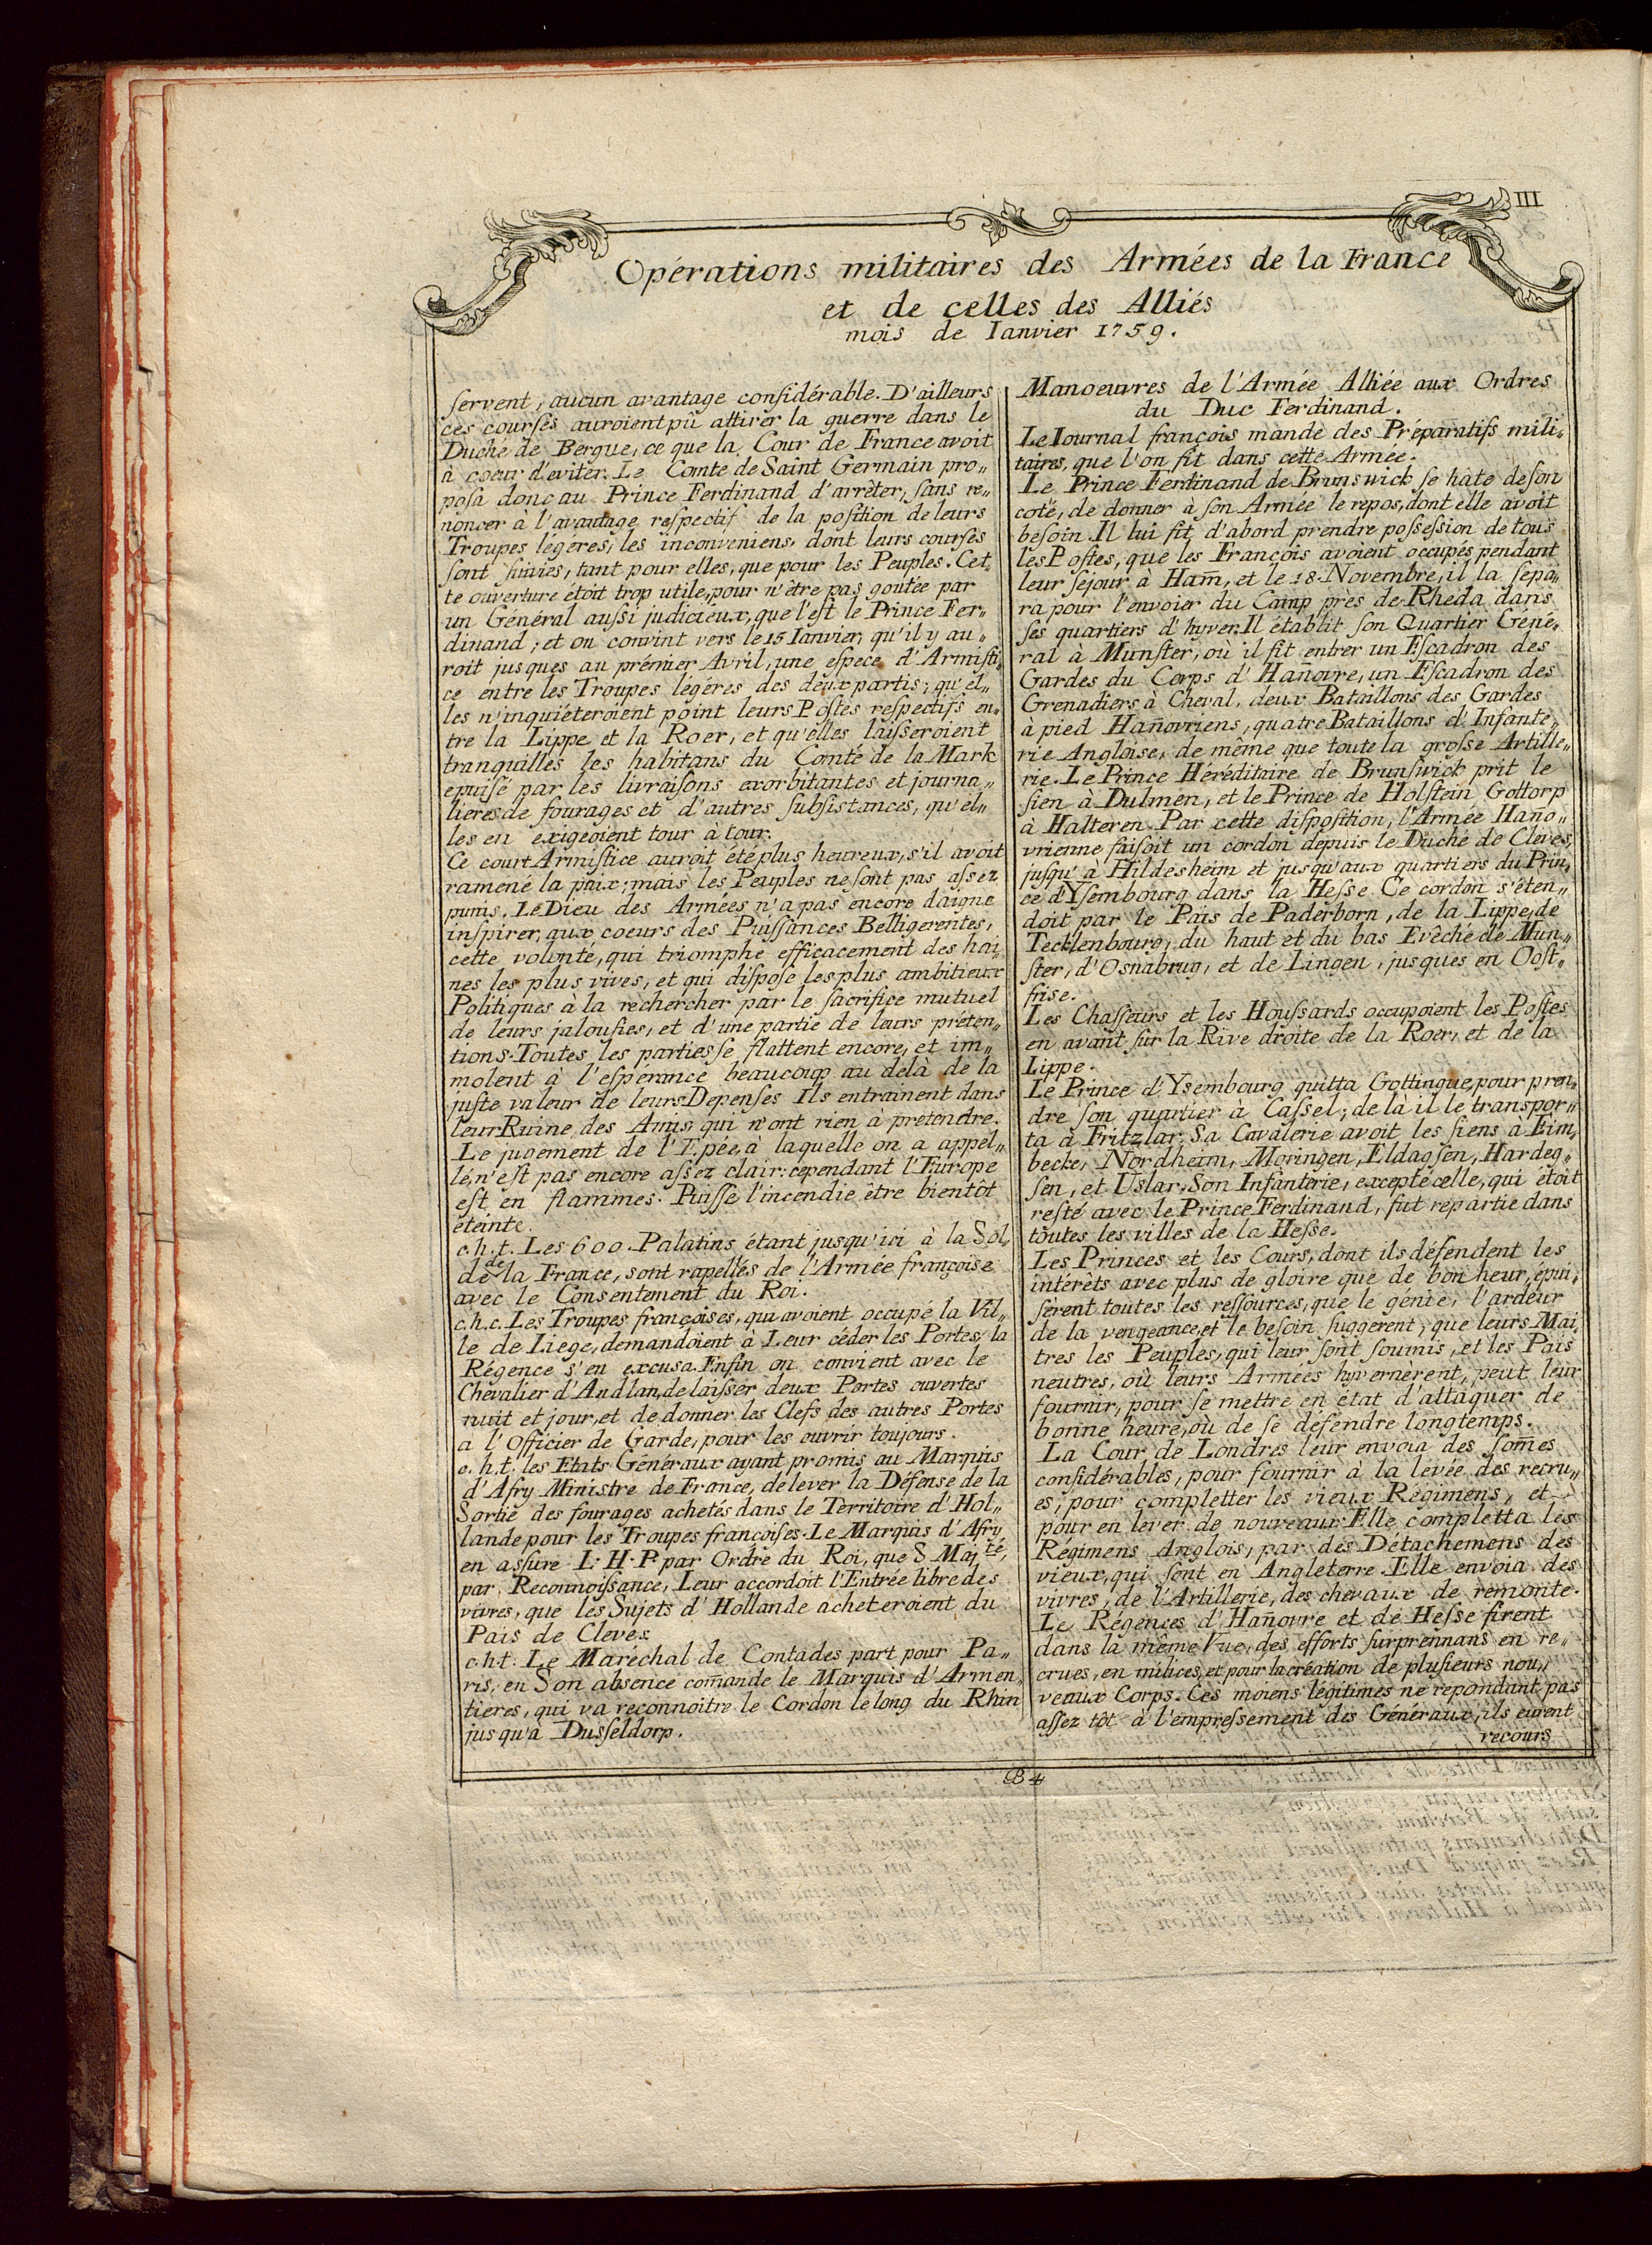 III
Opérations militaires des Armées de la France
et de celles des Alliés
mois de Ianvier 1759.
servent, aucun avantage considérable. D'ailleurs
ces courses auroient pû attirer la guerre dans le
Duché de Bergue, ce que la Cour de France avoit
à coeur d'eviter. Le Comte de Saint Germain pro„
posa donc au Prince Ferdinand d'arrêter, sans re„
noncer à l'avantage respectif de la position de leurs
Troupes légeres, les inconveniens, dont leurs courses
sont suivies, tant pour elles, que pour les Peuples. Cet„
te ouverture étoit trop utile, pour n'être pas goutée par
un Général aussi judicieux, que l'est le Prince Fer„
dinand; et on convint vers le 15 Ianvier, qu'il y au„
roit jusques au prémier Avril, une espece d'Armisti„
ce entre les Troupes légéres des deux partis; qu'el„
les n'inquiéteroient point leurs Postes respectifs en„
tre la Lippe et la Roer, et qu'elles laisseroient
tranquilles les habitans du Comté de la Mark
epuisé par les livraisons exorbitantes et journa„
lieres de fourages et d'autres subsistances, qu'el„
les en exigeoient tour à tour.
Ce court Armistice auroit été plus heureux, s'il avoit
ramené la paix; mais les Peuples ne sont pas assez
punis. Le Dieu des Armées n'a pas encore daigne
inspirer, aux coeurs des Puissances Belligerentes,
cette volonté, qui triomphe efficacement des hai„
nes les plus vives, et qui dispose les plus ambitieux
Politiques à la rechercher par le sacrifice mutuel
de leurs jalousies, et d'une partie de leurs préten„
tions. Toutes les parties se flattent encore, et im„
molent à l'espérance beaucoup au delà de la
juste valeur de leurs Depenses Ils entrainent dans
leur Ruine des Amis, qui n'ont rien à prétendre.
Le jugement de l'Epée, à laquelle on a appel„
lé, n'est pas encore assez clair: cependant l'Europe
est en flammes. Puisse l'incendie être bientôt
éteinte.
c.h.t. Les 600. Palatins étant jusqu'ici à la Sol„
de de la France, sont rapellés de l'Armée françoise
avec le Consentement du Roi.
c.h.c. Les Troupes françoises, qui avoient occupé la Vil„
le de Liege, demandoient à Leur céder les Portes, la
Régence s'en excusa. Enfin on convient avec le
Chevalier d'Andlan, de laisser deux Portes ouvertes
nuit et jour, et de donner les Clefs des autres Portes
a l'Officier de Garde, pour les ouvrir toujours.
c.h.t. les Etats Généraux ayant promis au Marquis
d'Afry Ministre de France, de lever la Défense de la
Sortie des fourages achetés dans le Territoire d'Hol„
lande pour les Troupes françoises. Le Marquis d'Afry,
en assure L. H. P. par Ordre du Roi, que S Maj.té,
par Reconnoissance, Leur accordoit l'Entrée libre des
vivres, que les Sujets d'Hollande acheteroient du
Pais de Cleves.
c.h.t. Le Maréchal de Contades part pour Pa„
ris, en Son absence com̄ande le Marquis d'Armen„
tieres, qui va reconnoitre le Cordon le long du Rhin
jusqu'à Dusseldorp.
Manoeuvres de l'Armée Alliée aux Ordres
du Duc Ferdinand.
Le Iournal françois mande des Préparatifs mili„
taires, que l'on fit dans cette Armée.
Le Prince Ferdinand de Brunswick se hate de son
coté, de donner à son Armée le repos, dont elle avoit
besoin. Il lui fit d'abord prendre possession de tous
les Postes, que les François avoient occupés pendant
leur sejour à Ham̄, et le 18. Novembre, il la sepa„
ra pour l'envoier du Camp près de Rheda dans
ses quartiers d'hyver. Il établit son Quartier Géné„
ral à Munster, où il fit entrer un Escadron des
Gardes du Corps d'Han̄ovre, un Escadron des
Grenadiers à Cheval, deux Bataillons des Gardes
à pied Han̄ovriens, quatre Bataillons d'Infante„
rie Angloise, de même que toute la grosse Artille„
rie. Le Prince Héréditaire de Brunswick prit le
sien à Dulmen, et le Prince de Holstein Gottorp
à Halteren. Par cette disposition, l'Armée Hano„
vrienne faisoit un cordon depuis le Duché de Cleves,
jusqu'à Hildesheim et jusqu'aux quartiers du Prin„
ce d'Ysembourg dans la Hesse. Ce cordon s'éten„
doit par le Païs de Paderborn, de la Lippe, de
Tecklenbourg, du haut et du bas Evêché de Mun„
ster, d'Osnabrug, et de Lingen, jusques en Oost„
frise.
Les Chasseurs et les Houssards occupoient les Postes
en avant sur la Rive droite de la Roer, et de la
Lippe.
Le Prince d'Ysembourg quitta Gottingue, pour pren„
dre son quartier à Cassel; de là il le transpor„
ta à Fritzlar. Sa Cavalerie avoit les siens à Eim„
becke, Nordheim, Moringen, Eldagsen, Hardeg„
sen, et Uslar. Son Infanterie, excepté celle, qui étoit
resté avec le Prince Ferdinand, fut repartie dans
toutes les villes de la Hesse.
Les Princes et les Cours, dont ils défendent les
intérêts avec plus de gloire que de bonheur, épui„
sèrent toutes les ressources, que le génie, l'ardeur
de la vengeance, et le besoin suggerent; que leurs Mai„
tres les Peuples, qui leur sont soumis, et les Pais
neutres, où leurs Armées hyvernèrent, peut leur
fournir, pour se mettre en état d'attaquer de
bonne heure, où de se défendre longtemps.
La Cour de Londres leur envoia des som̄es
considérables, pour fournir à la levée des recru„
es, pour completter les vieux Régimens, et
pour en lever de nouveaux. Elle completta les
Régimens Anglois, par des Détachemens des
vieux, qui sont en Angleterre. Elle envoia des
vivres, de l'Artillerie, des chevaux de remonte.
Le Régences d'Han̄ovre et de Hesse firent
dans la même Vue, des efforts surprennans en re„
crues, en milices, et pour la création de plusieurs nou„
veaux Corps. Ces moiens légitimes ne repondant pas
assez tôt à l'empressement des Généraux, ils eurent
recours
B 4